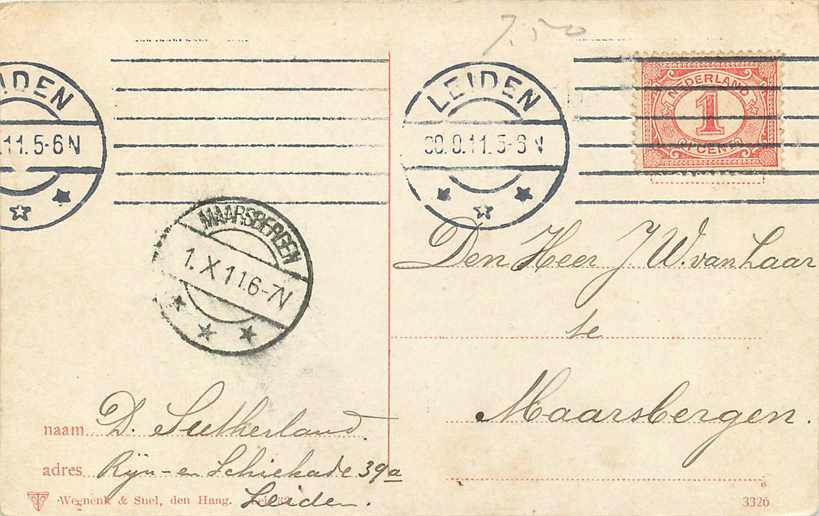 7.50
LEIDEN
.11.5-6N
LEIDEN
5-6 N
NEDERLAND
1
CENT
MAARSBERGEN
1.X 11.6-7N
Den Heer J. W. van Laar
te
Maarsbergen.
naam D. Sutherland.
adres Rijn- en Schiekade 39a
Leiden.
Wegnenk & Snel, den Haag.
3326